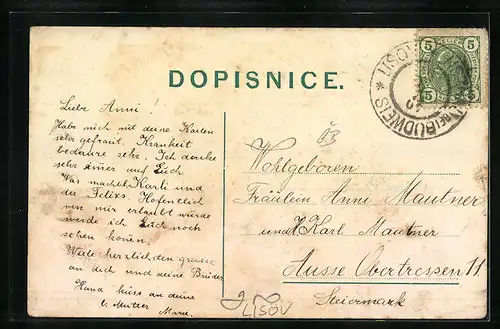 DOPISNICE.
5 5
5 5
* LISOV * BUDWEIS
Liebe Anni!
Habe mich mit deine Karten
sehr gefraut. Krankheit
bedaure sehr. Ich denke
sehr imer auf Euch
Was machst Karli und
da Felixs. Hofentlich
wen mir erlaubt würde
werde ich Euch noch
sehen kouen.
Viele herzlichden grusse
an dich und deine Brüder
Hand küss an deine
l. Mutter
Marie.
Wohlgeboren
Fräulein Anni Mautner
und H. Karl Mautner
Ausse Obertressen 11
Steiermark
LISOV